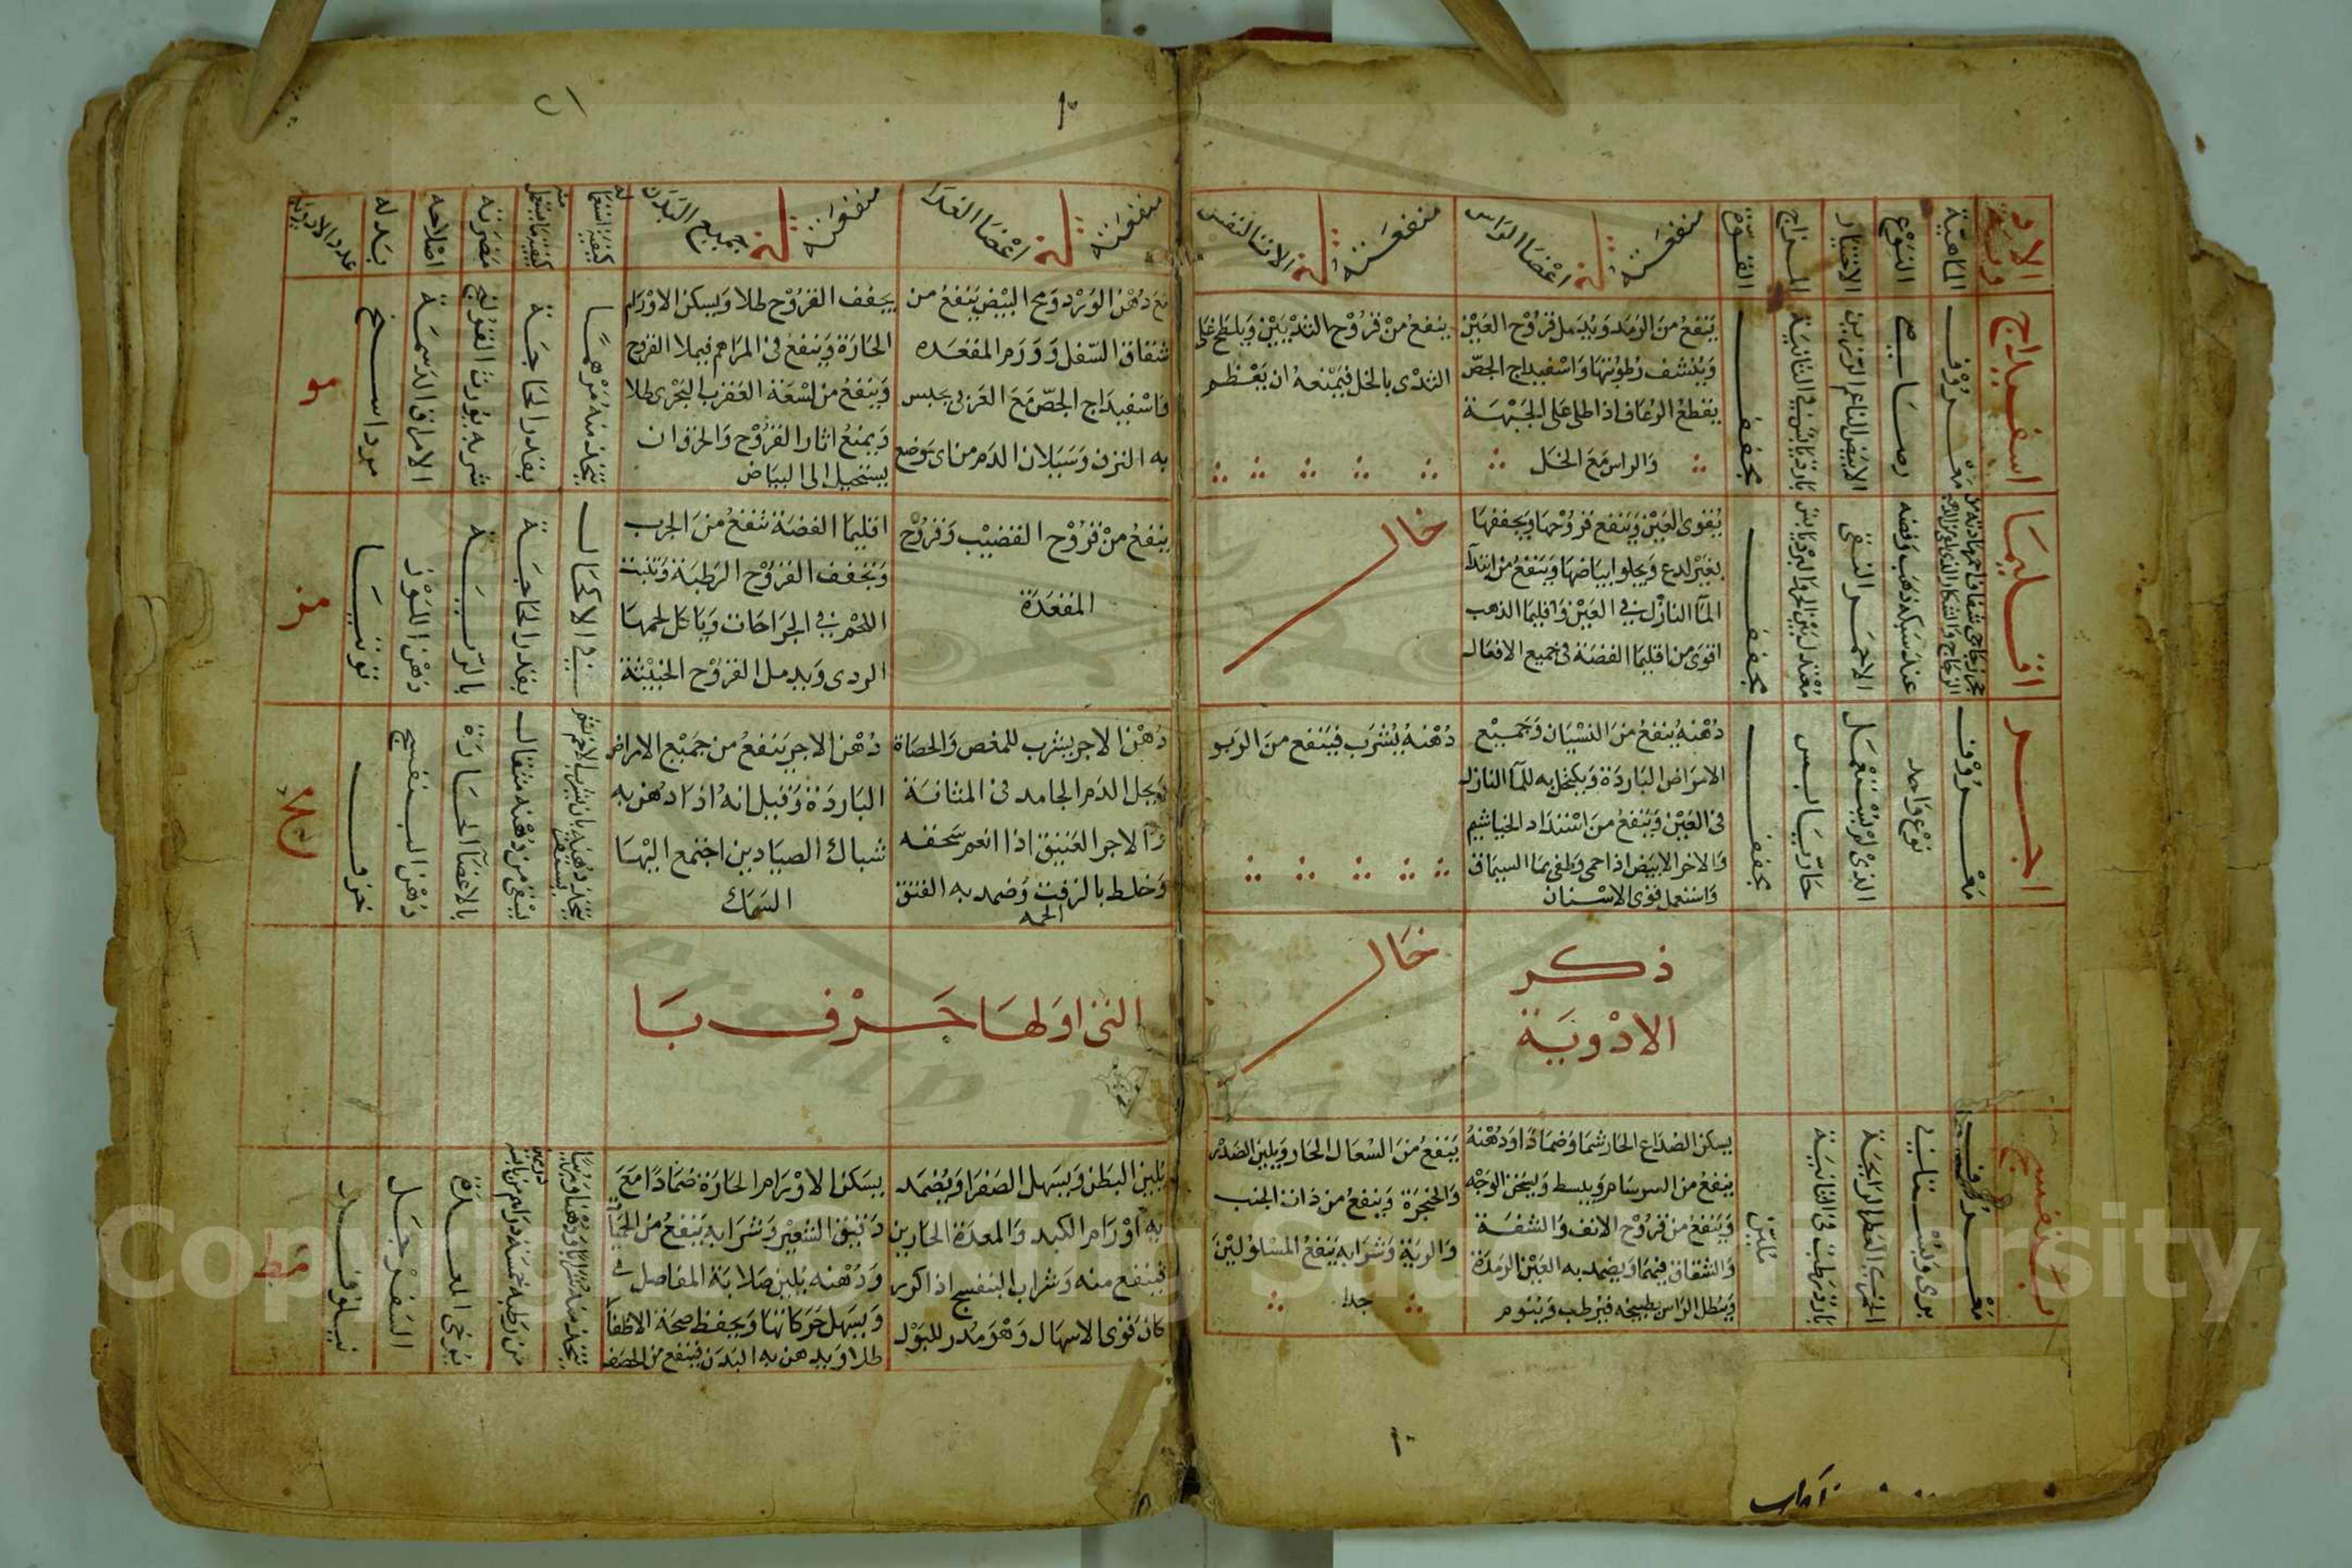 الادوية
الماهية
النوع
الاختيار
المزاج
القوة
منفعته في اعضا الراس
منفعته في الات النفس
منفعته في اعضا الغذا
منفعته في جميع البدن
كيفية استعماله
مضرته
اصلاحه
بدله
عدد الادوية
اسفيداج
معروف
رصاصي
الابيض الناعم الرزين
بارد يابس في الثانية
مجفف
ينفع من الرمد ويدمل قروح العين
وينشف رطوبتها واسفيداج الجص
يقطع الرعاف اذا طلي على الجبهة
والراس مع الخل
ينفع من قروح الثديين ويلطخ على
الثدي بالخل فيمنعه ان يعظم
مع دهن الورد ومح البيض ينفع من
شقاق السفل وورم المقعده
واسفيداج الجص مع الغزى يحبس
به النزف وسيلان الدم من اي موضع
يجفف القروح طلا ويسكن الاورام
الحارة وينفع في المراهم فيملا القروح
وينفع من لسعة العقرب البحري طلا
ويمنع اثار القروح والحرق ان
يستحيل الى البياض
يتخذ منه مرهما
بقدر الحاجة
شربه يورث القولنج
الامراق الدسمة
مرداسنج
مو
اقليميا
عند سبكه ذهب وفضه
الاحمر النقي
معتدل بين الحر والبرد يابس
مجفف
يقوي العين وينفع قروحها ويجففها
بغير لدع ويجلوا بياضها وينفع من ابتدا
الما النازل في العين واقليميا الذهب
اقوى من اقليميا الفضة في جميع الافعال
خال
ينفع من قروح القضيب وقروح
المقعدة
اقليميا الفضة تنفع من الجرب
وتجفف القروح الرطبة وتنبت
اللحم في الجراحات وياكل لحمها
الردي ويدمل القروح الخبيثة
في الاكحال
بقدر الحاجة
بالرية
دهن اللوز
توتيا
مز
اجر
معروف
نوع واحد
الذي لم يستعمل
حار يابس
مجفف
دهنه ينفع من النسيان وجميع
الامراض الباردة ويكتحل به للما النازل
في العين وينفع من انسداد الخياشيم
والاجر الابيض اذا حمي وطفي بما السماق
واستعمل قوى الاسنان
دهنه يشرب فينفع من الربو
دهن الاجر يشرب للمغص والحصاة
ويحل الدم الجامد في المثانة
والاجر العتيق اذا انعم سحقه
وخلط بالزفت وضمد به الفتق
الحمه
دهن الاجر ينفع من جميع الامراض
الباردة وقيل انه اذا دهن به
شباك الصيادين اجتمع اليها
السمك
يسقى من دهنه مثقال
بالاعضا الحارة
دهن البنفسج
خزف
مح
ذكر
الادوية
خال
التي اولها حرف با
بنفسج
معروف
بري وبستاني
العطر الرايحة
بارد رطب في الثانية
ملين
يسكن الصداع الحار شما وضمادا ودهنه
ينفع من السرسام ويبسط ويسخن الوجه
وينفع من قروح الانف والشفة
والشقاق فيهما ويضمد به العين الرمدة
وينطل الراس بطبيخه فيرطب وينوم
ينفع من السعال الحار ويلين الصدر
والحنجرة وينفع من ذات الجنب
والرية وشرابه ينفع المسلولين
جدا
يلين البطن ويسهل الصفرا ويضمد
به اورام الكبد والمعدة الحارين
فينفع منه وشراب البنفسج اذا اكرر
كان قوي الاسهال وهو مدر للبول
يسكن الاورام الحارة ضمادا مع
دقيق الشعير وشرابه ينفع من الحميات
ودهنه يلين صلابة المفاصل
ويسهل حركاتها ويحفظ صحة الاظفار
طلا ويدهن به البدن فينفع من الحصف
يرخي المعدة
السفرجل
نيلوفر
مط
Copyright © King Saud University